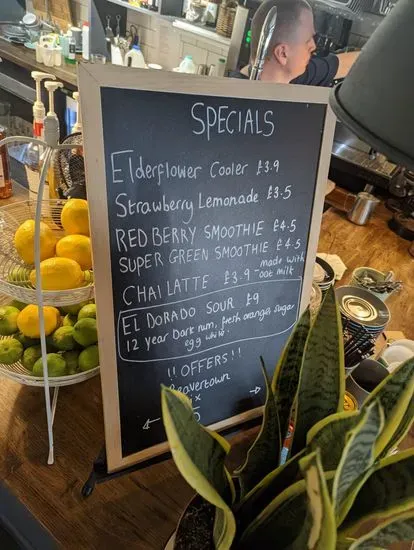 SPECIALS
Elderflower Cooler £3.9
Strawberry Lemonade £3.5
RED BERRY SMOOTHIE £4.5
SUPER GREEN SMOOTHIE £4.5
CHAI LATTE £3.9 made with oat milk
EL DORADO SOUR £9
12 year Dark rum, fresh orange, sugar
egg white.
!! OFFERS !!